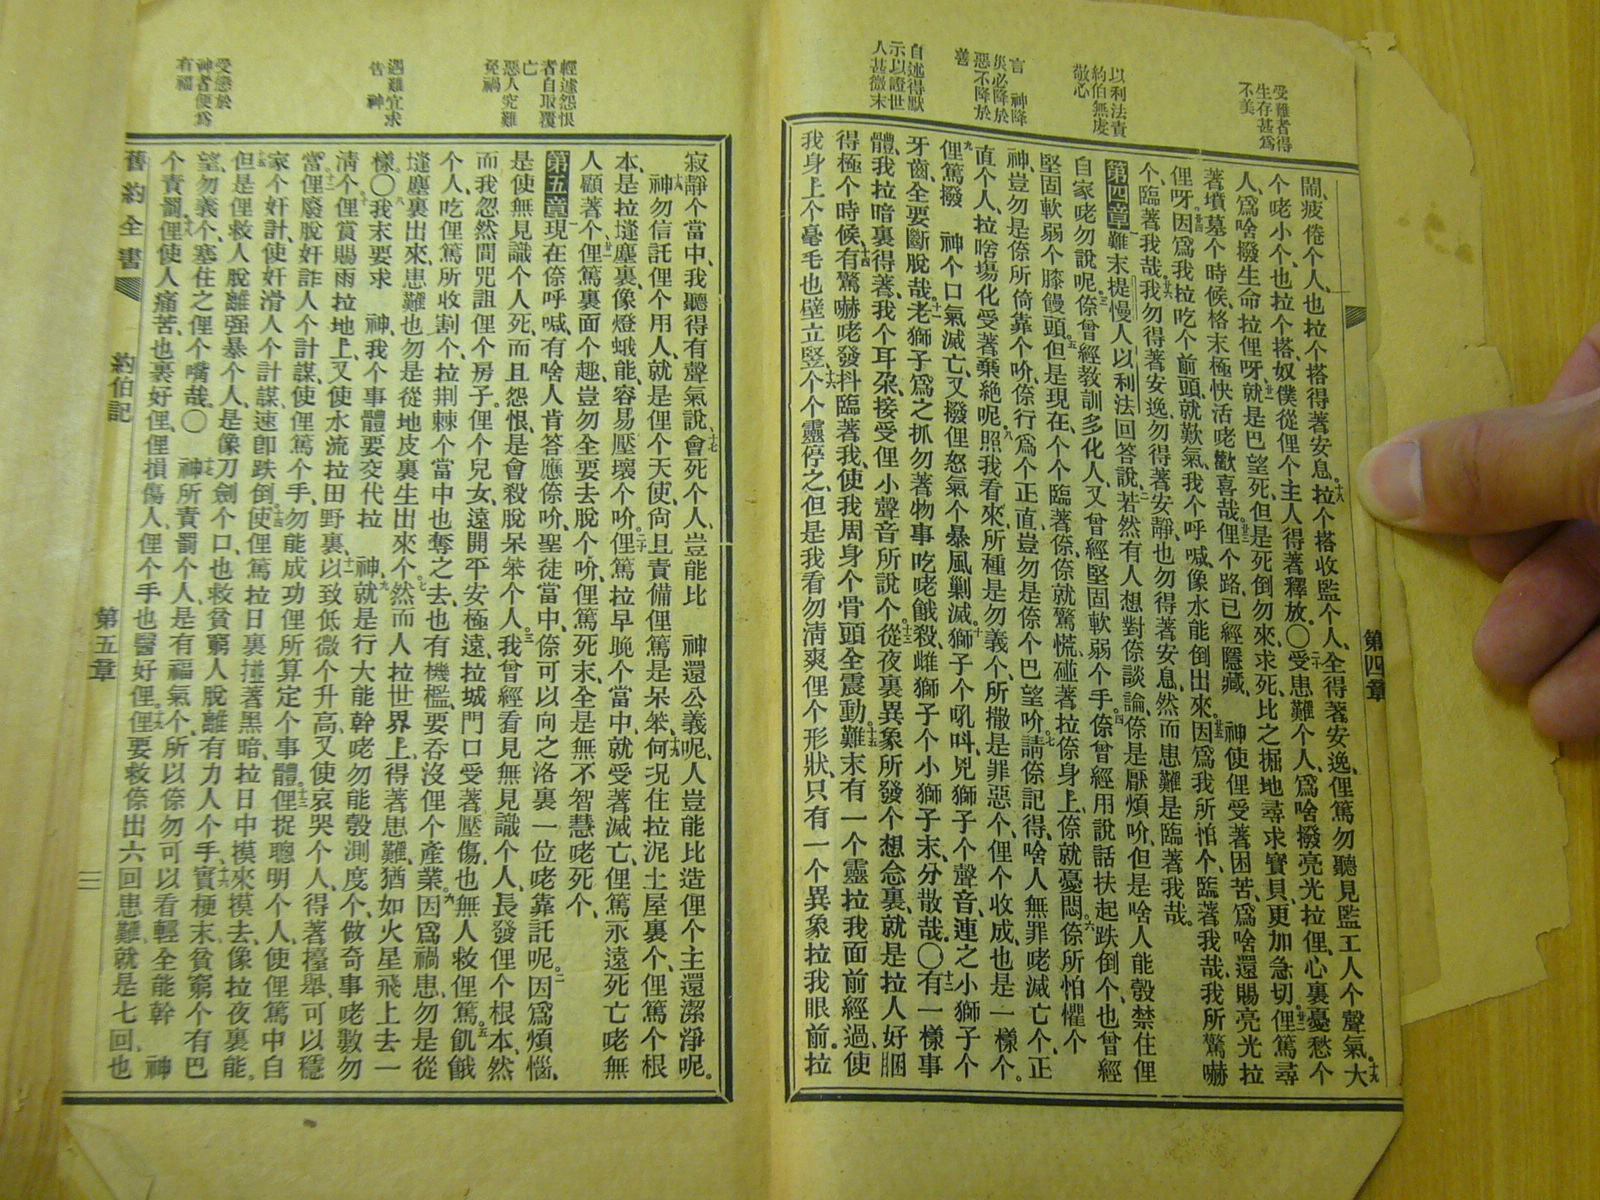 受難者得
生存甚爲
不美
以利法責
約伯無虔
敬心
言 神降
災必降於
惡不降於
善
自述得默
示以證世
人甚微末
第四章
鬧、疲倦个人、也拉个搭得著安息。十八拉个搭收監个人、全得著安逸、俚篤勿聽見監工人个聲氣。十九大
个咾小个、也拉个搭、奴僕從俚个主人得著釋放。〇二十受患難个人、爲啥撥亮光拉俚、心裏憂愁个
人、爲啥撥生命拉俚呀。廿一就是巴望死、但是死倒勿來、求死、比之掘地尋求寶貝、更加急切。廿二俚篤尋
著墳墓个時候、格末極快活咾歡喜哉。廿三俚个路、已經隱藏、 神使俚受著困苦、爲啥還賜亮光拉
俚呀。廿四因爲我拉吃个前頭、就歎氣、我个呼喊、像水能倒出來。廿五因爲我所怕个、臨著我哉、我所驚嚇
个、臨著我哉。廿六我勿得著安逸、勿得著安靜、也勿得著安息、然而患難是臨著我哉。
第四章一難末提慢人以利法回答說、二若然有人想對倷談論、倷是厭煩吤、但是啥人能彀禁住俚
自家咾勿說呢。三倷曾經敎訓多化人、又曾經堅固軟弱个手。四倷曾經用說話扶起跌倒个、也曾經
堅固軟弱个膝饅頭。五但是現在、个个臨著倷、倷就驚慌、碰著拉倷身上、倷就憂悶。六倷所怕懼个
神、豈勿是倷所倚靠个吤、倷行爲个正直、豈勿是倷个巴望吤。七請倷記得、啥人無罪咾滅亡个、正
直个人、拉啥塲化受著棄絕呢。八照我看來、所種是勿義个、所撒是罪惡个、俚个收成也是一樣个。
九俚篤撥 神个口氣滅亡、又撥俚怒氣个暴風剿滅。十獅子个吼呌、兇獅子个聲音、連之小獅子个
牙齒、全要斷脫哉。十一老獅子爲之抓勿著物事吃咾餓殺、雌獅子个小獅子末、分散哉。〇十二有一樣事
體、我拉暗裏得著、我个耳朶、接受俚小聲音所說个。十三從夜裏異象所發个想念裏、就是拉人好睏
得極个時候、十四有驚嚇咾發抖臨著我、使我周身个骨頭全震動。十五難末有一个靈拉我面前經過、使
我身上个毫毛也壁立豎个。十六个个靈停之、但是我看勿淸爽俚个形狀、只有一个異象拉我眼前、拉
輕遽怨恨
者自取覆
亡
惡人究難
免禍
遇難宜求
告 神
受懲於
神者便爲
有福
寂靜个當中、我聽得有聲氣說、十七會死个人、豈能比 神還公義呢、人豈能比造俚个主還潔淨呢。
十八神勿信託俚个用人、就是俚个天使、尙且責備俚篤是呆笨、十九何况住拉泥土屋裏个、俚篤个根
本、是拉塳塵裏、像燈蛾能、容易壓壞个吤。二十俚篤拉早晚个當中、就受著滅亡、俚篤永遠死亡咾無
人顧著个。廿一俚篤裏面个趣、豈勿全要去脫个吤、俚篤死末、全是無不智慧咾死个、
第五章現在倷呼喊、有啥人肯答應倷吤、聖徒當中、倷可以向之洛裏一位咾靠託呢。二因爲煩惱、
是使無見識个人死、而且怨恨、是會殺脫呆笨个人。三我曾經看見無見識个人、長發俚个根本、然
而我忽然間咒詛俚个房子。四俚个兒女、遠開平安極遠、拉城門口受著壓傷、也無人救俚篤。五飢餓
个人、吃俚篤所收割个、拉荆棘个當中也奪之去、也有機檻、要吞沒俚个產業。六因爲禍患、勿是從
塳塵裏出來、患難也勿是從地皮裏生出來个、七然而人拉世界上、得著患難、猶如火星飛上去一
樣。〇八我末要求 神、我个事體要交代拉 神、九就是行大能幹咾勿能彀測度个、做奇事咾數勿
淸个、十俚賞賜雨拉地上、又使水流拉田野裏、十一以致低微个升高、又使哀哭个人、得著擡舉、可以穩
當。十二俚廢脫奸詐人个計謀、使俚篤个手、勿能成功俚所算定个事體。十三俚捉聰明个人、使俚篤中自
家个奸計、使奸滑人个計謀、速卽跌倒。十四使俚篤拉日裏撞著黑暗、拉日中摸來摸去、像拉夜裏能。
十五但是俚救人脫離强暴个人、是像刀劍个口、也救貧窮人脫離有力人个手、十六實梗末貧窮个有巴
望、勿義个、塞住之俚个嘴哉。〇十七 神所責罰个人、是有福氣个、所以倷勿可以看輕全能幹 神
个責罰。十八俚使人痛苦、也裹好俚、俚損傷人、俚个手也醫好俚。十九俚要救倷出六回患難、就是七回、也
舊約全書 約伯記 第五章 三